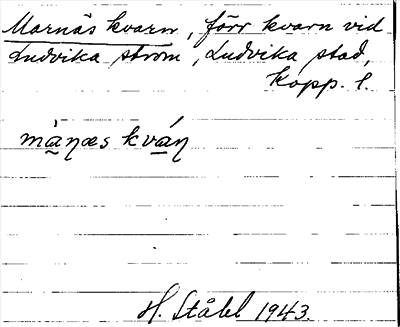 Marnäs kvarn, förr kvarn vid
Ludvika ström, Ludvika stad,
Kopp. l.
mà̱ŋæs kvá̱ŋ
H. Ståhl 1943.